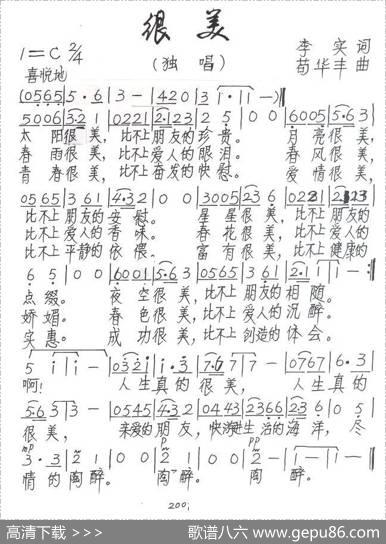 很 美
1=C 2/4
(独 唱)
李 实 词
苟华丰 曲
喜悦地
(0565|5·6|3-|4 2 0|3 i·|i i-):||
5006 321|0221|2·123|2 5|0 0|6005|5·63|
太 阳很 美, 比不上 朋友的 珍 贵。 月 亮很 美,
春 雨很 美, 比不上 爱人的 眼 泪。 春 风很 美,
青 春很 美, 比不上 奋发的 快 慰。 爱 情很 美,
0565|3 61|4·32|2|0 0|3005|236|022|2123|
比不上 朋友的 安 慰。 星 星很 美, 比不上 朋友的
比不上 爱人的 香 味。 春 花很 美, 比不上 爱人的
比不上 平静的 依 偎。 富 有很 美, 比不上 健康的
6 5|0 0|6001|5·63|0565|3 61|2·1|1-:|
点 缀。 夜 空很 美,比不上 朋友的 相 随。
娇 媚。 春 色很 美,比不上 爱人的 沉 醉。
实 惠。 成 功很 美,比不上 创造的 体 会。
5 i|i-|0321|i·3|7·67|7-|0767|6·3|
啊! 人生真 的 很 美, 人生真 的
5 6 3|3-|0545|4·32|0443|2366|236|0 5|
很 美, 亲爱的 朋 友, 生活的 海 洋, 尽
mp p pp
3·3|2 1|0 0|2 1|0 0|2-|1-|1-|
情 的 陶 醉。 陶 醉。 陶 醉。
200
高清下载 >>>
歌谱八六 www.gepu86.com